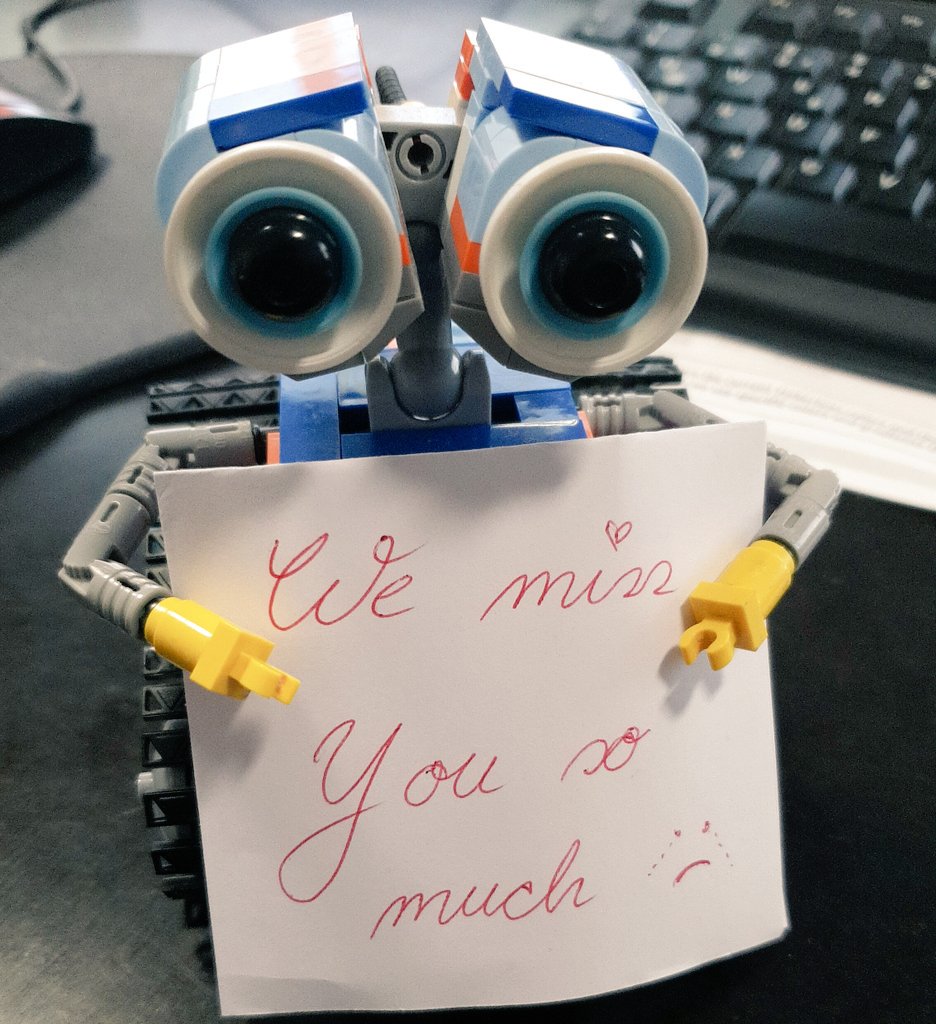 We miss
You so
much